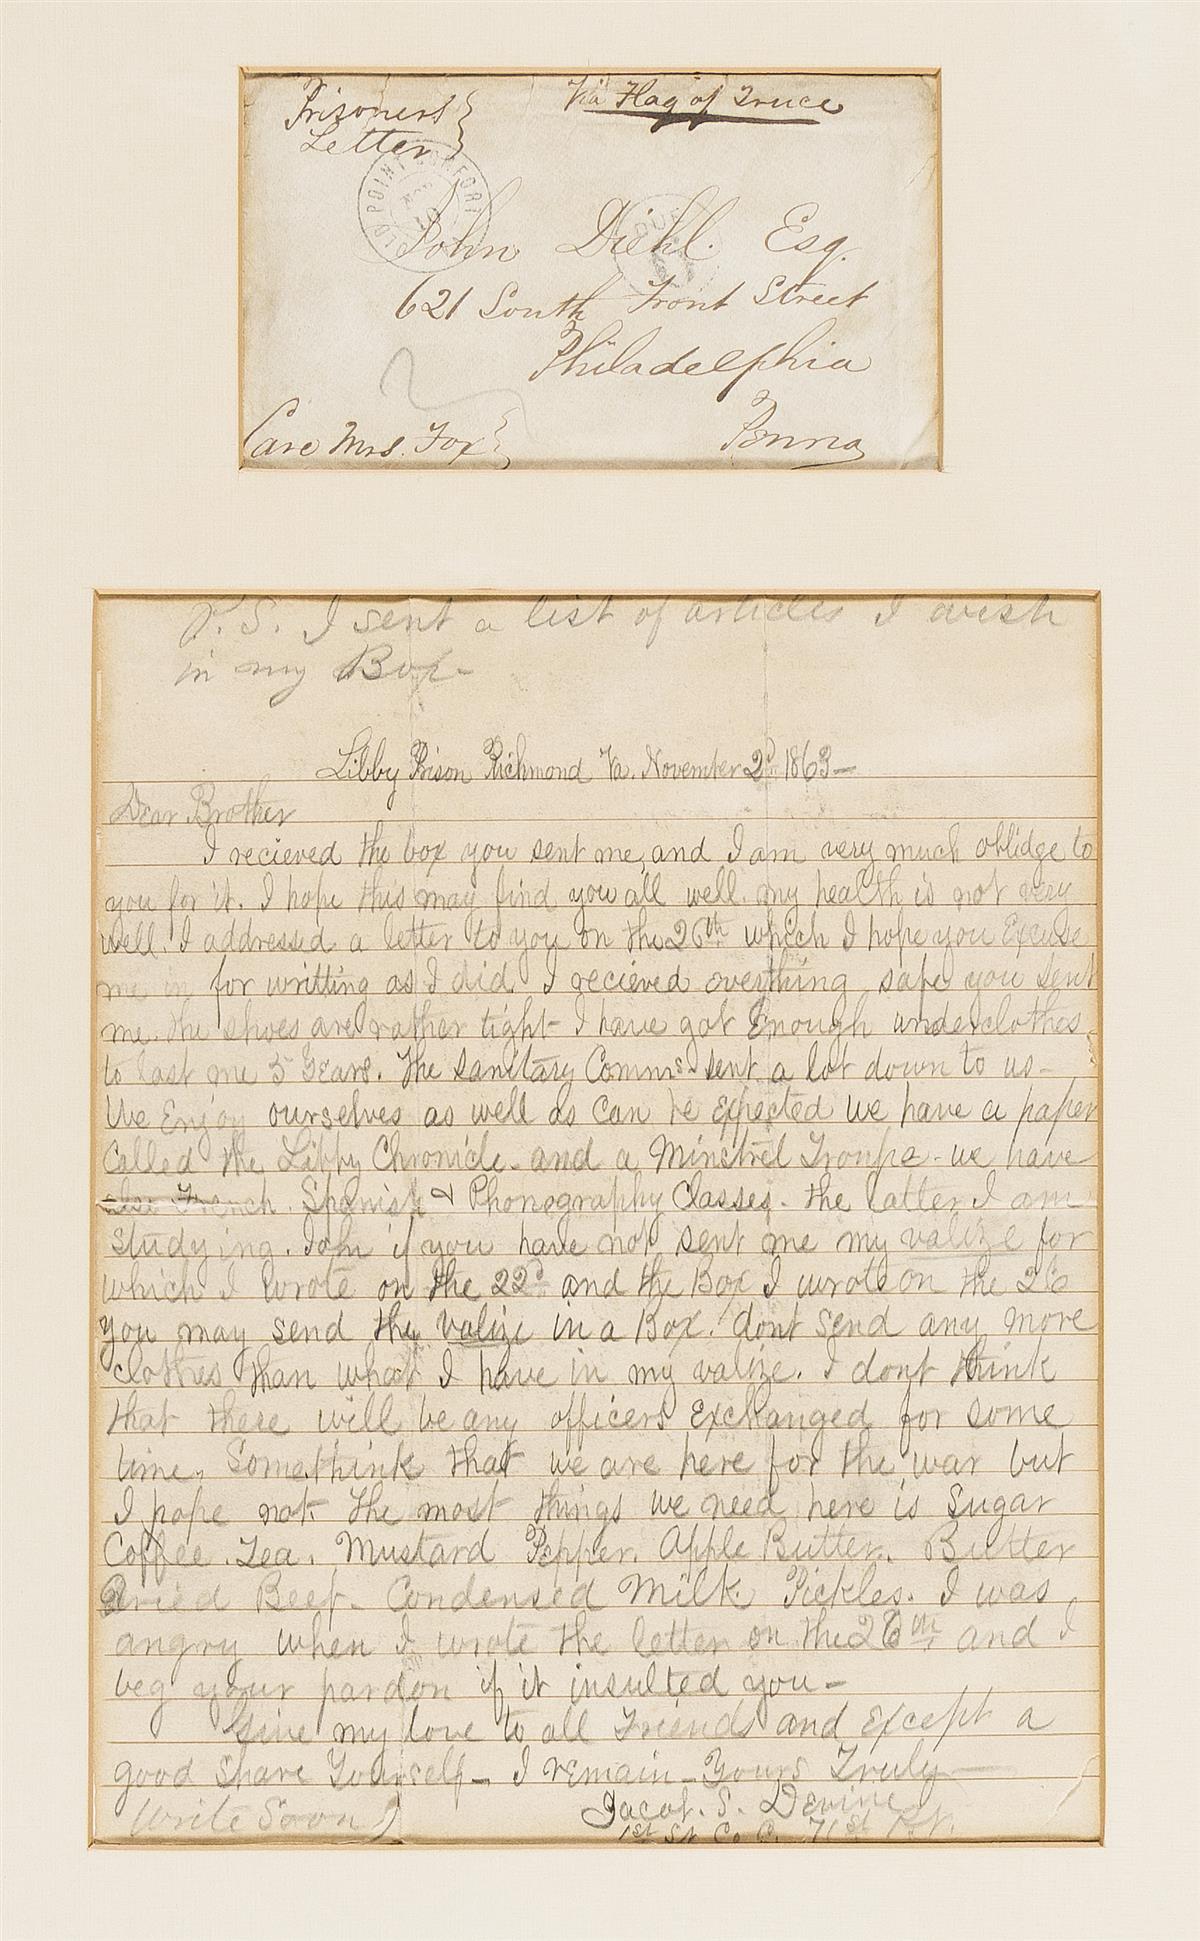 Prisoners
Letter
Via Flag of Truce
OLD POINT COMFORT
DUE
John Diehl. Esq.
621 South Front Street
Philadelphia
Care Mrs. Fox
Penna
P. S. I sent a list of articles I wish
in my Box-
Libby Prison Richmond Va. November 2d 1863-
Dear Brother
I recieved the box you sent me, and I am very much oblidge to
you for it. I hope this may find you all well. my health is not very
well. I addressed a letter to you on the 26th which I hope you Excuse
me in for writting as I did. I recieved everthing safe you sent
me. the shoes are rather tight- I have got Enough underclothes
to last me 5 Years. The Sanitary Comms. sent a lot down to us-
We Enjoy ourselves as well as can be Expected we have a paper
Called the Libby Chronicle. and a Minstrel Troupe- we have
also French. Spanish & Phonography Classes. the latter I am
Studying. John if you have not sent me my valize for
which I wrote on the 22d and the Box I wrote on the 26
you may send the valize in a Box. dont send any more
clothes than what I have in my valize. I dont think
that there will be any officers Exchanged for some
time. Some think that we are here for the war but
I hope not. The most things we need here is Sugar
Coffee. Tea. Mustard Pepper. Apple Butter. Butter
Dried Beef. Condensed Milk. Pickles. I was
angry when I wrote the letter on the 26th and I
beg your pardon if it insulted you-
Give my love to all Friends and Except a
good Share Yourself- I remain- Yours Truly-
Write Soon
Jacob. S. Devine
1st St. Co C. 71st